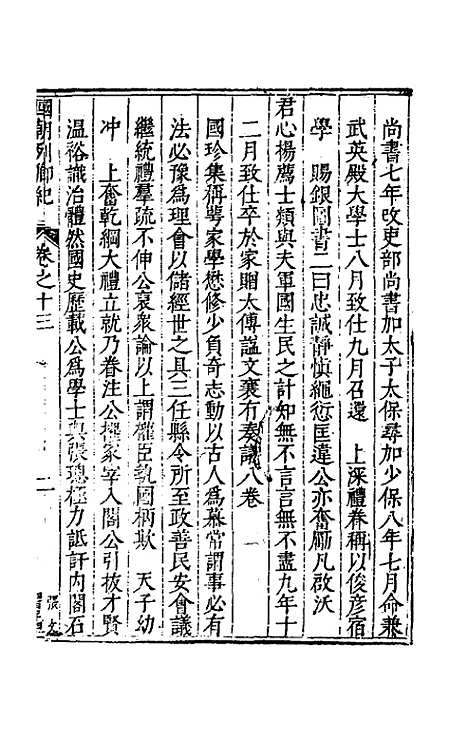 尚書七年改吏部尚書加太子太保尋加少保八年七月命兼
武英殿大學士八月致仕九月召還 上深禮眷稱以俊彥宿
學 賜銀圖書二曰忠誠靜慎繩愆匡違公亦奮勵凡啟沃
君心楊薦士類與夫軍國生民之計知無不言言無不盡九年十
二月致仕卒於家贈太傅謚文襄有奏議八卷
國珍集稱萼家學懋修少負奇志動以古人為慕常謂事必有
法必豫為理會以儲經世之具三任縣令所至政善民安會議
繼統禮羣疏不伸公裒衆論以上謂權臣執國柄欺 天子幼
冲 上奮乾綱大禮立就乃眷注公擢冢宰入閣公引拔才賢
溫裕識治體然國史歷載公為學士與張璁極力詆訐內閣石
國朝列卿紀 卷之十三 二